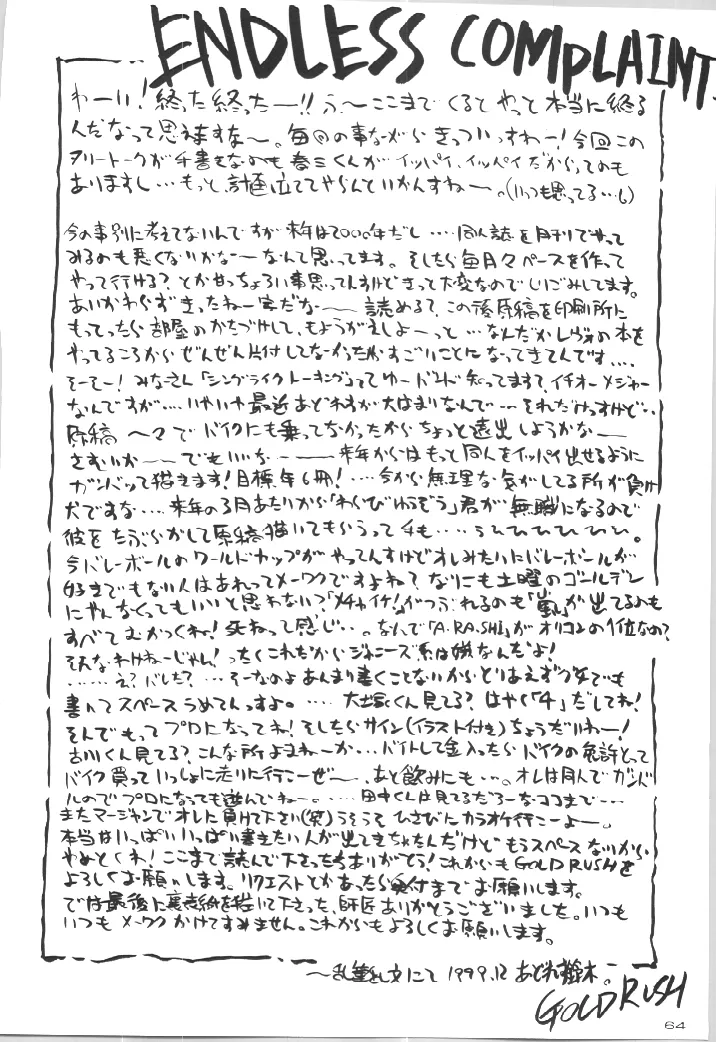 ENDLESS COMPLAINT
わーい!終った終ったー!!う、~ここまでくるとやっと本当に終る
んだなって思いますな~。毎回の事ながらきっついっすわー!今回この
フリートークが手書きなのも春三くんがイッパイ、イッパイだからってのも
ありますし…もっと計画立ててやらんといかんすねー。(いつも思ってる…し)
今の事別に考えてないんですが来年は2000年だし‥‥同人誌を月刊でやって
みるのも悪くないかなーなんて思ってます。そしたら毎月々ペースを作って
やって行ける?とかせっちょろい事思ってんすけどきって大変なのでしりごみしてます。
あいかわらずきったねー字だなー 読める?この後原稿を印刷所に
もってったら部屋のかたづけして、もようがえしよーっと…なんだかレヴォの本を
やってるころからぜんぜん片付してなかったからすごいことになってきてんです‥‥
そーそー!みなさん「シングライクトーキング」ってゆーバンド知ってます?イチオーメジャー
なんですが‥‥いやいや最近あどれすが大はまりなんで…それだけっすけど‥
原稿 〜々でバイクにも乗ってなかったからちょっと遠出しようかなー
さむいかーーでもいいなーー来年からはもっと同人をイッパイ出せるように
ガンバって描きます!目標年6冊!‥‥今から無理な気がしてる所が負け
犬ですな‥‥来年の3月あたりから「わらびゆうぞう」君が無職になるので
彼をたぶらかして原稿描いてもらうって手も‥‥うひひひひひひ。
今バレーボールのワールドカップがやってんすけどオレみたいにバレーボールが
好きでもない人はあれってメーワクですよね?なにも土曜のゴールデン
にやんなくってもいいと思わない?「メチャイケ!」がつぶれるのも「嵐」が出てるのも
すべてむかつくね!死ねって感じ‥。なんで「A.RA.SHI」がオリコンの1位なの?
そんなわけねーじゃん!ったくこれだからジャニーズ系は嫌なんだよ!
‥‥‥え?バレた?…そーなのよあんまり書くことないからとりあえず文でも
書いてスペースうめてんっすよ。‥‥大塚くん見てる?はやく「4」だしてね!
そんでもってプロになってね!そしたらサイン(イラスト付き)ちょうだいねー!
古川くん見てる?こんな所よまねーか…バイトして金入ったらバイクの免許とって
バイク買っていっしょに走りに行こーぜー、あと飲みにも…。オレは同人でガンバ
ルのでプロになっても遊んでねー。‥‥田中くんは見てるだろーなココまで…
またマージャンでオレに負けて下さい(笑)うそうそひさびさにカラオケ行こーよー。
本当はいっぱいいっぱい書きたい人が出てきちゃたんだけどもうスペースないから
やめとくね!ここまで読んで下さったらありがとう!これからもGOLD RUSHを
よろしくお願いします。リクエストとかあったら受付までお願いします。
では最後に裏表紙を描いて下さった、師匠ありがとうございました。いつも
いつもメーワクかけてすみません。これからもよろしくお願いします。
~乱筆乱文にて 1999.12 あどれす鈴木。
GOLD RUSH
64